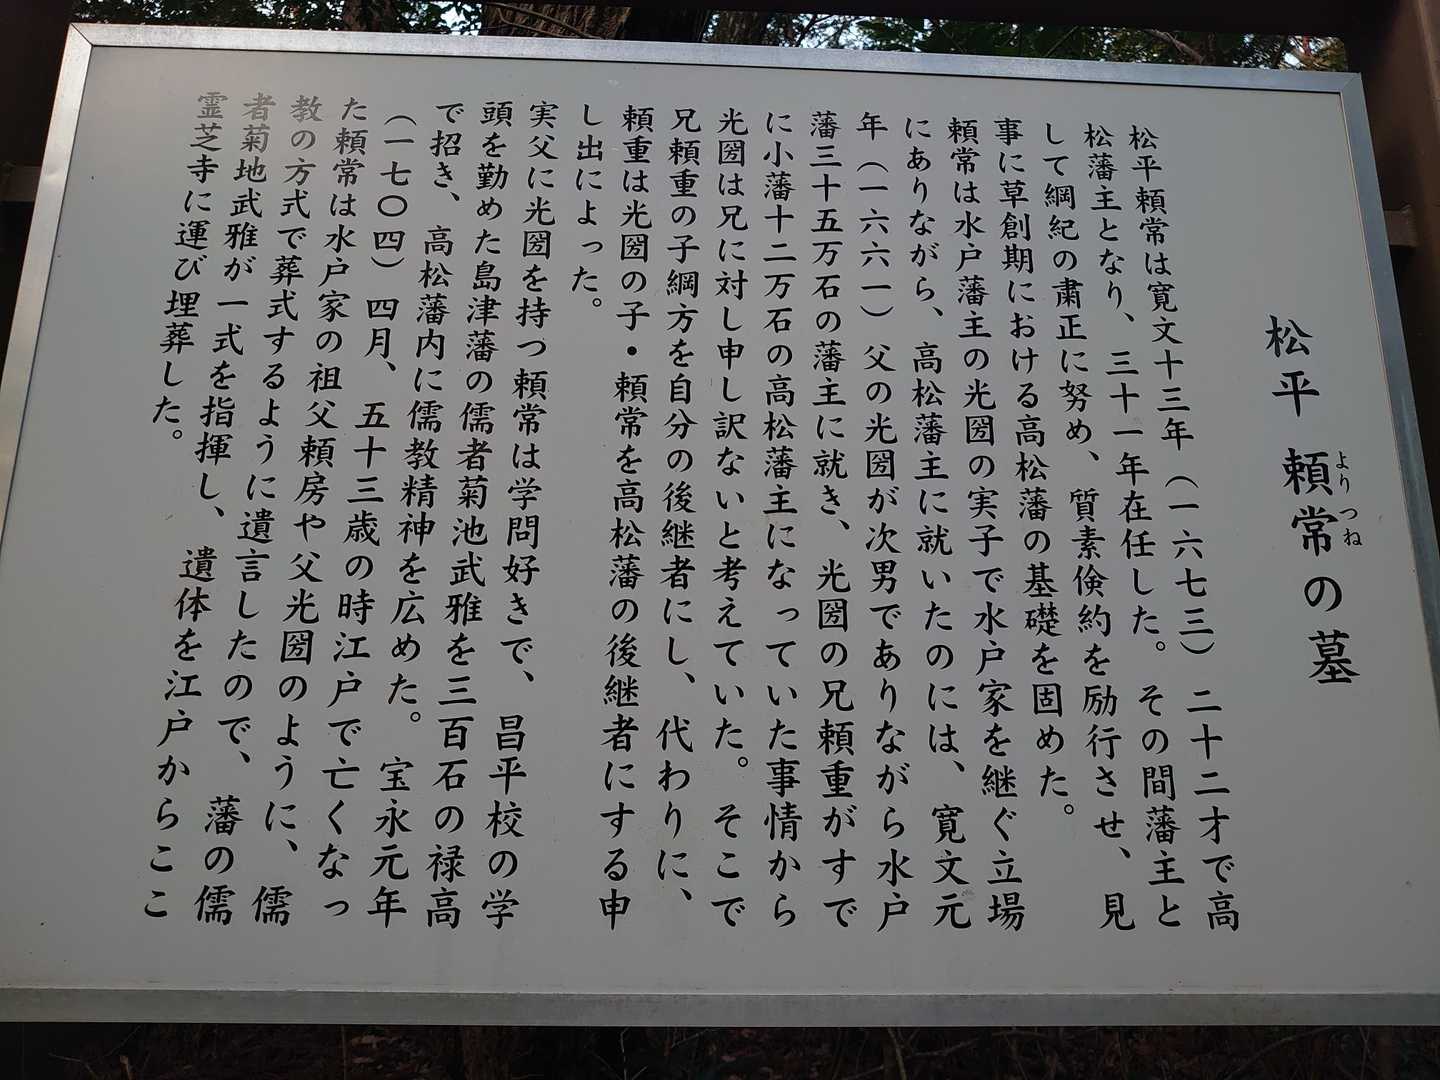 松平 頼常の墓
よりつね
松平頼常は寛文十三年（一六七三）二十二才で高
松藩主となり、三十一年在任した。その間藩主と
して綱紀の粛正に努め、質素倹約を励行させ、見
事に草創期における高松藩の基礎を固めた。
頼常は水戸藩主の光圀の実子で水戸家を継ぐ立場
にありながら、高松藩主に就いたのには、寛文元
年（一六六一）父の光圀が次男でありながら水戸
藩三十五万石の藩主に就き、光圀の兄頼重がすで
に小藩十二万石の高松藩主になっていた事情から
光圀は兄に対し申し訳ないと考えていた。そこで
兄頼重の子綱方を自分の後継者にし、代わりに、
頼重は光圀の子・頼常を高松藩の後継者にする申
し出によった。
実父に光圀を持つ頼常は学問好きで、昌平校の学
頭を勤めた島津藩の儒者菊池武雅を三百石の禄高
で招き、高松藩内に儒教精神を広めた。宝永元年
（一七〇四）四月、五十三歳の時江戸で亡くなっ
た頼常は水戸家の祖父頼房や父光圀のように、儒
教の方式で葬式するように遺言したので、藩の儒
者菊地武雅が一式を指揮し、遺体を江戸からここ
霊芝寺に運び埋葬した。